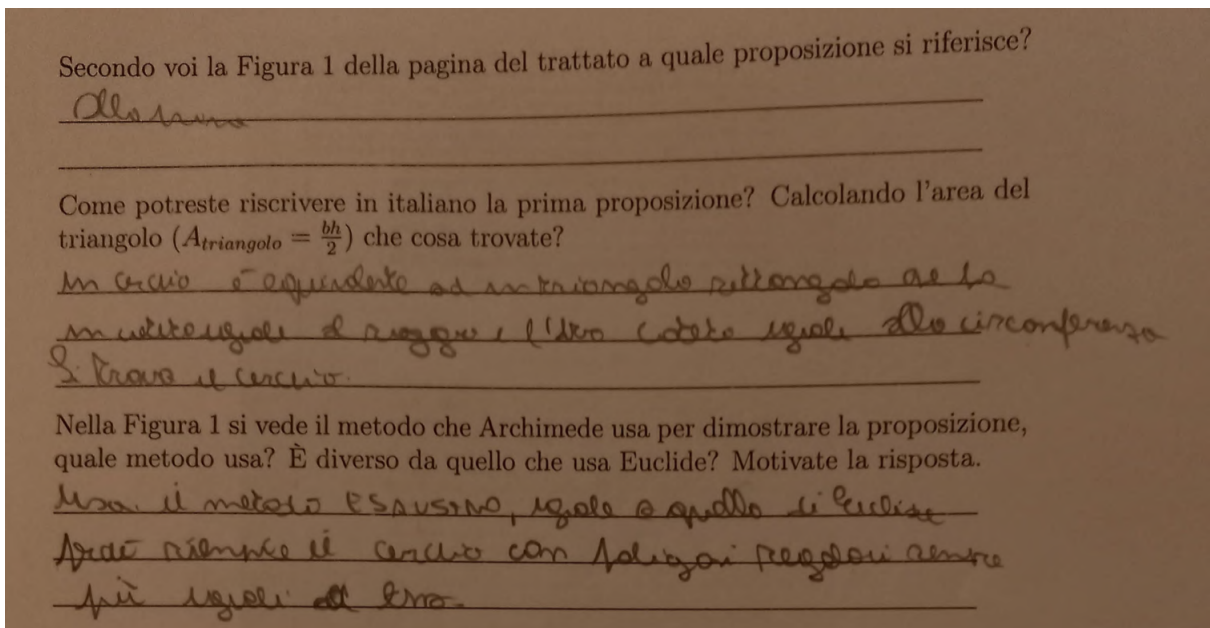 Secondo voi la Figura 1 della pagina del trattato a quale proposizione si riferisce?
Come potreste riscrivere in italiano la prima proposizione? Calcolando l'area del
triangolo (A_triangolo = bh/2) che cosa trovate?
un cerchio è equivalente ad un triangolo rettangolo che ha
un cateto uguale al raggio e l'altro cateto uguale alla circonferenza
Si trova il cerchio.
Nella Figura 1 si vede il metodo che Archimede usa per dimostrare la proposizione,
quale metodo usa? È diverso da quello che usa Euclide? Motivate la risposta.
Usa il metodo ESAUSTIVO, uguale a quello di Euclide
riempie il cerchio con poligoni regolari sempre
più uguali